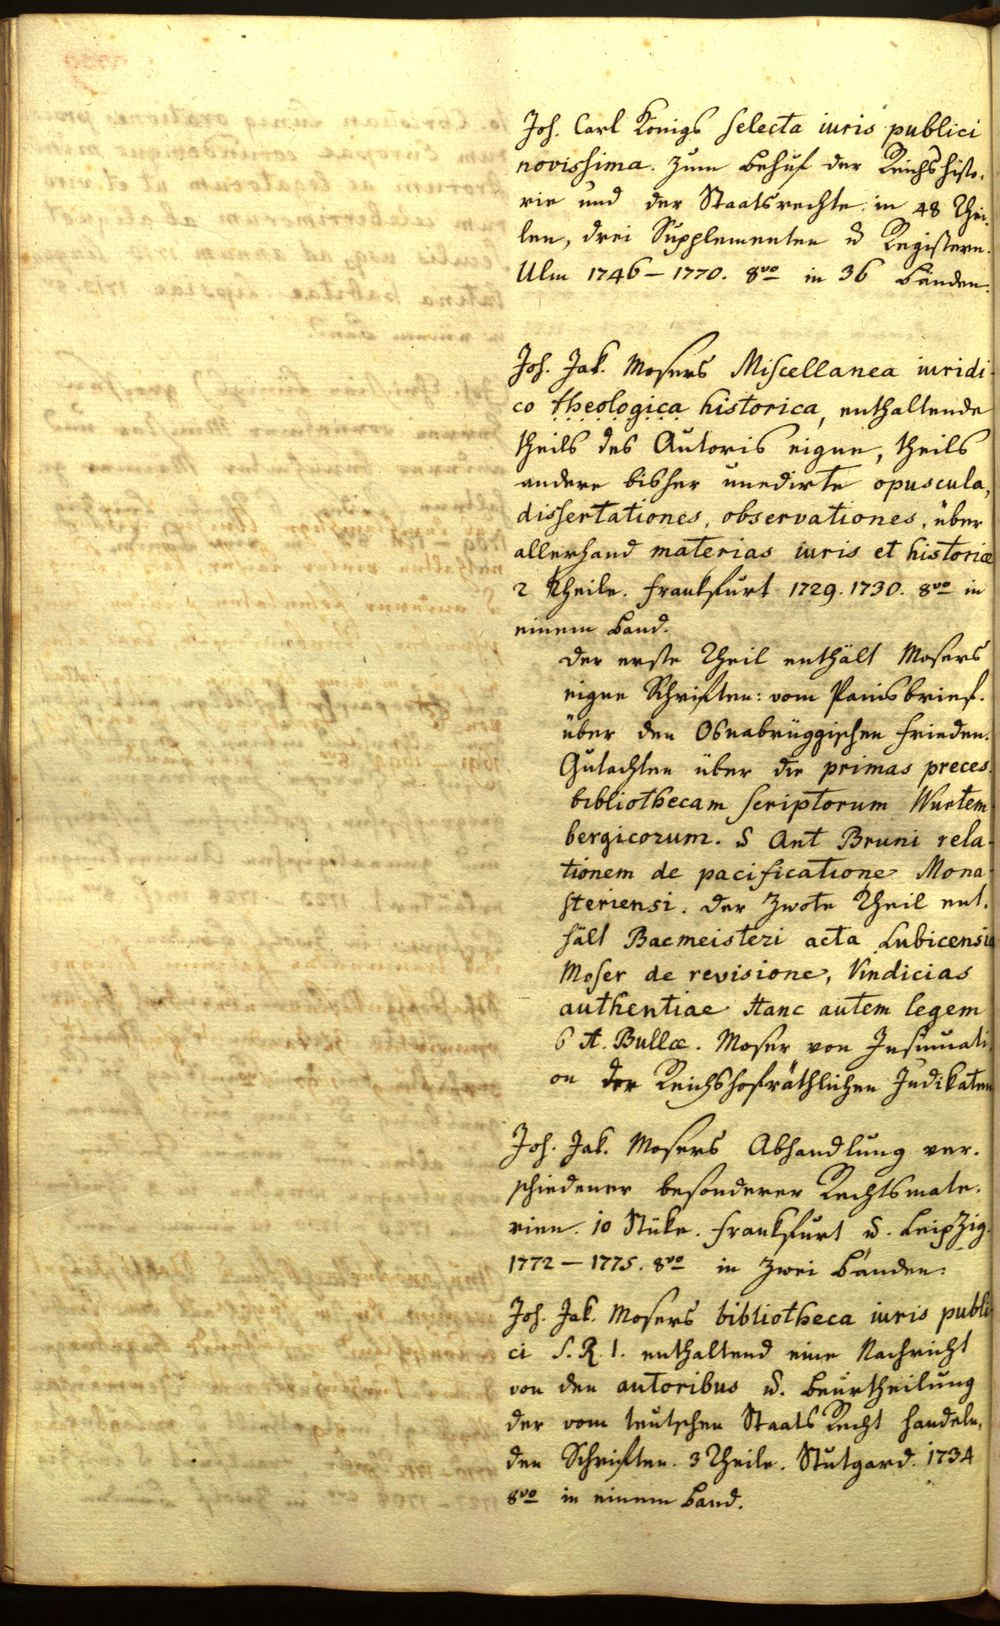 Joh. Carl Königs selecta iuris publici
novissima. Zum Behuf der Reichshisto-
rie und der Staatsrechte. in 48 Thei-
len, drei Supplementen u Registern.
Ulm 1746 – 1770. 8vo in 36 Bänden.
Joh. Jak. Mosers Miscellanea iuridi-
co theologica historica, enthaltende
theils des Autoris eigne, theils
andere bisher unedirte opuscula,
dissertationes, observationes, über
allerhand materias iuris et historiæ
2 Theile. Frankfurt 1729. 1730. 8vo in
einem Band.
der erste Theil enthält Mosers
eigne Schriften: vom Panisbrief.
über den Osnabrüggischen Frieden.
Gutachten über die primas preces.
bibliothecam scriptorum Würtem-
bergicorum. & Ant Bruni rela-
tionem de pacificatione Mona-
steriensi. der zwote Theil ent-
hält Bacmeisteri acta Lubicensia
Moser de revisione, Vindicias
authentiae Hanc autem legem
6 A. Bullæ. Moser von Insinuati-
on der Reichshofräthlichen Judikaten
Joh. Jak. Mosers Abhandlung ver-
schiedener besonderer Rechtsmate-
rien. 10 Stüke. Frankfurt u. Leipzig.
1772 – 1775. 8vo in zwei Bänden.
Joh. Jak. Mosers bibliotheca iuris publi
ci S. R. I. enthaltend eine Nachricht
von den autoribus u. Beurtheilung
der vom teutschen Staats Recht handeln-
den Schriften. 3 Theile. Stutgard. 1734
8vo in einem Band.